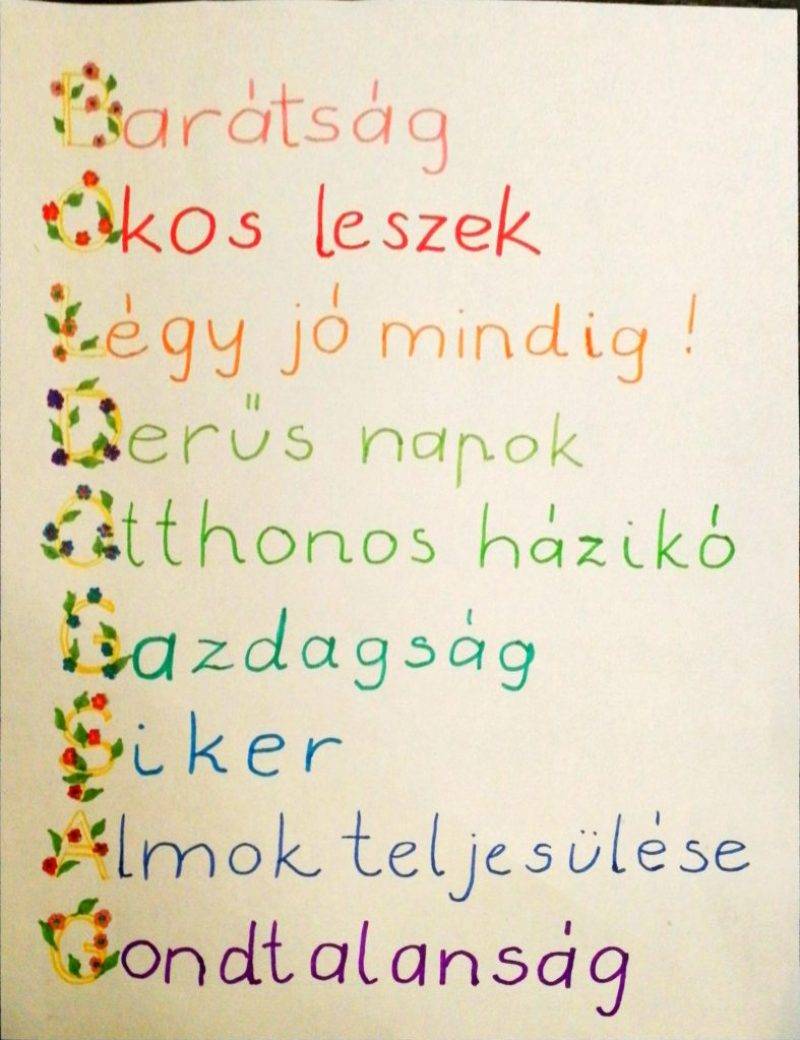 Barátság
Okos leszek
Légy jó mindig!
Derűs napok
Otthonos házikó
Gazdagság
Siker
Álmok teljesülése
Gondtalanság